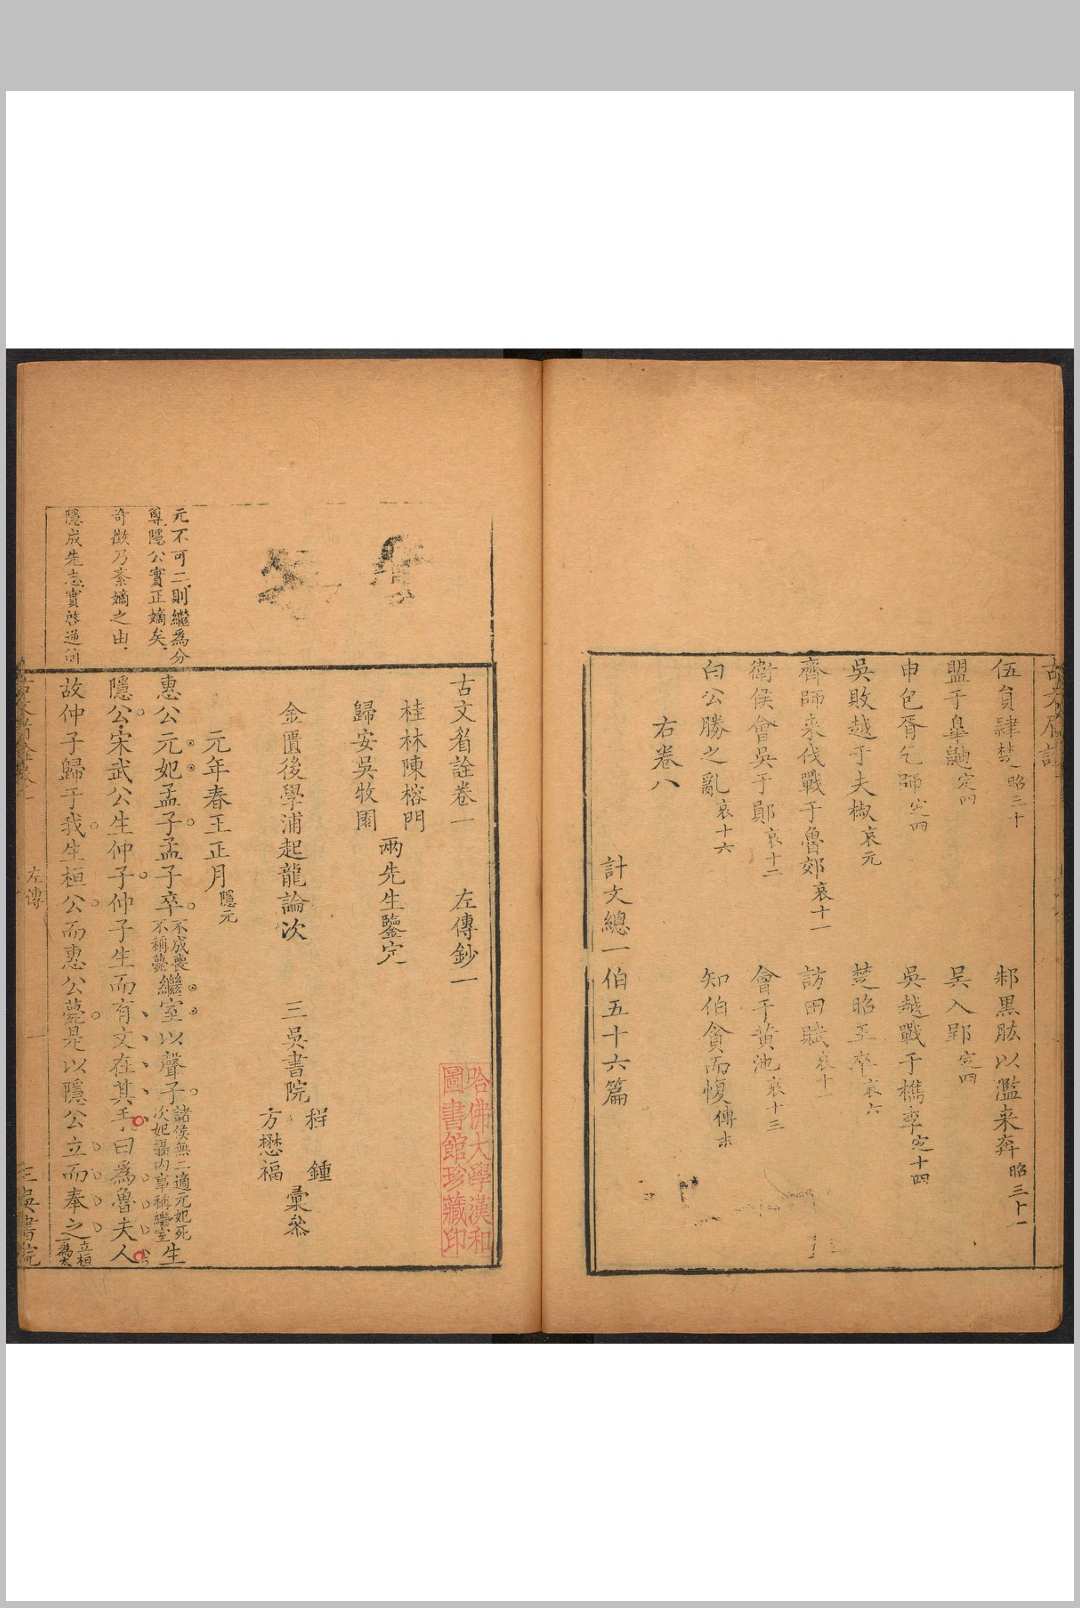 伍員肄楚昭三十
邾黑肱以濫來奔昭三十一
盟于皐鼬定四
吳入郢定四
申包胥乞師定四
吳越戰于檇李定十四
吳敗越于夫椒哀元
楚昭王卒哀六
齊師來伐戰于魯郊哀十一
訪田賦哀十一
衛侯會吳于鄖哀十二
會于黃池哀十三
白公勝之亂哀十六
知伯貪而愎傳末
右卷八
計文總一伯五十六篇
古文眉詮卷一 左傳鈔一
桂林陳榕門
歸安吳牧園
兩先生鑒定
金匱後學浦起龍論次
三吳書院
程鍾
方懋福
彙叅
哈佛大學漢和
圖書館珍藏印
元年春王正月隱元
元不可二則繼為分
尊隱公實正嫡矣
惠公元妃孟子孟子卒不成喪不稱薨繼室以聲子諸侯無二適元妃死次妃攝內事稱繼室生
奇徵乃紊嫡之由
隱公宋武公生仲子仲子生而有文在其手曰為魯夫人
隱成先志實啓逼
故仲子歸于我生桓公而惠公薨是以隱公立而奉之立桓為太
左傳
一
三吳書院